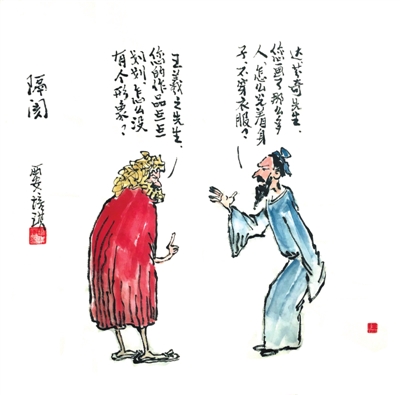 达芬奇先生.
您画了那么多
人,怎么光着身
子,不穿衣服?
王羲之先生.
您的作品点点
划划,怎么没
有个形象?
隔阂